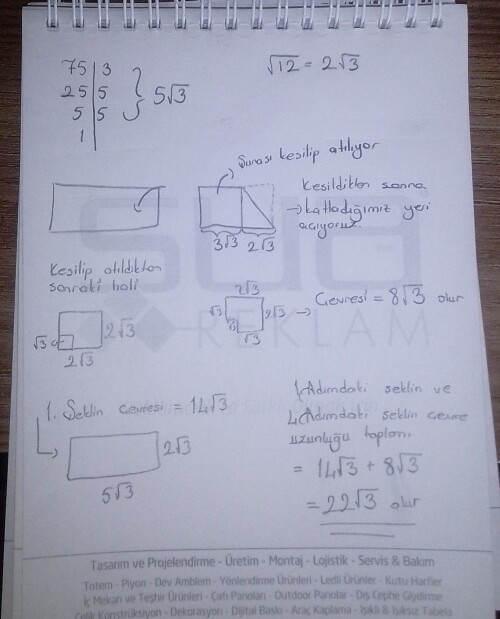 75 | 3
25 | 5
5 | 5
1 |
5√3
√12 = 2√3
Şurası kesilip atılıyor
Kesildikten sonra
→ katladığımız yeri
açıyoruz.
3√3 2√3
Kesilip atıldıktan
sonraki hali
√3 2√3
2√3
2√3
√3 2√3
√3
→ Çevresi = 8√3 olur
1. Şeklin çevresi = 14√3
2√3
5√3
1. Adımdaki şeklin ve
4. Adımdaki şeklin çevre
uzunluğu toplamı
= 14√3 + 8√3
= 22√3 olur
SUA
REKLAM
Tasarım ve Projelendirme - Üretim - Montaj - Lojistik - Servis & Bakım
Totem - Piyon - Dev Amblem - Yönlendirme Ürünleri - Ledli Ürünler - Kutu Harfler
İç Mekan ve Teşhir Ürünleri - Çatı Panoları - Outdoor Panolar - Dış Cephe Giydirme
Çelik Konstrüksiyon - Dekorasyon - Dijital Baskı - Araç Kaplama - Işıklı & Işıksız Tabela